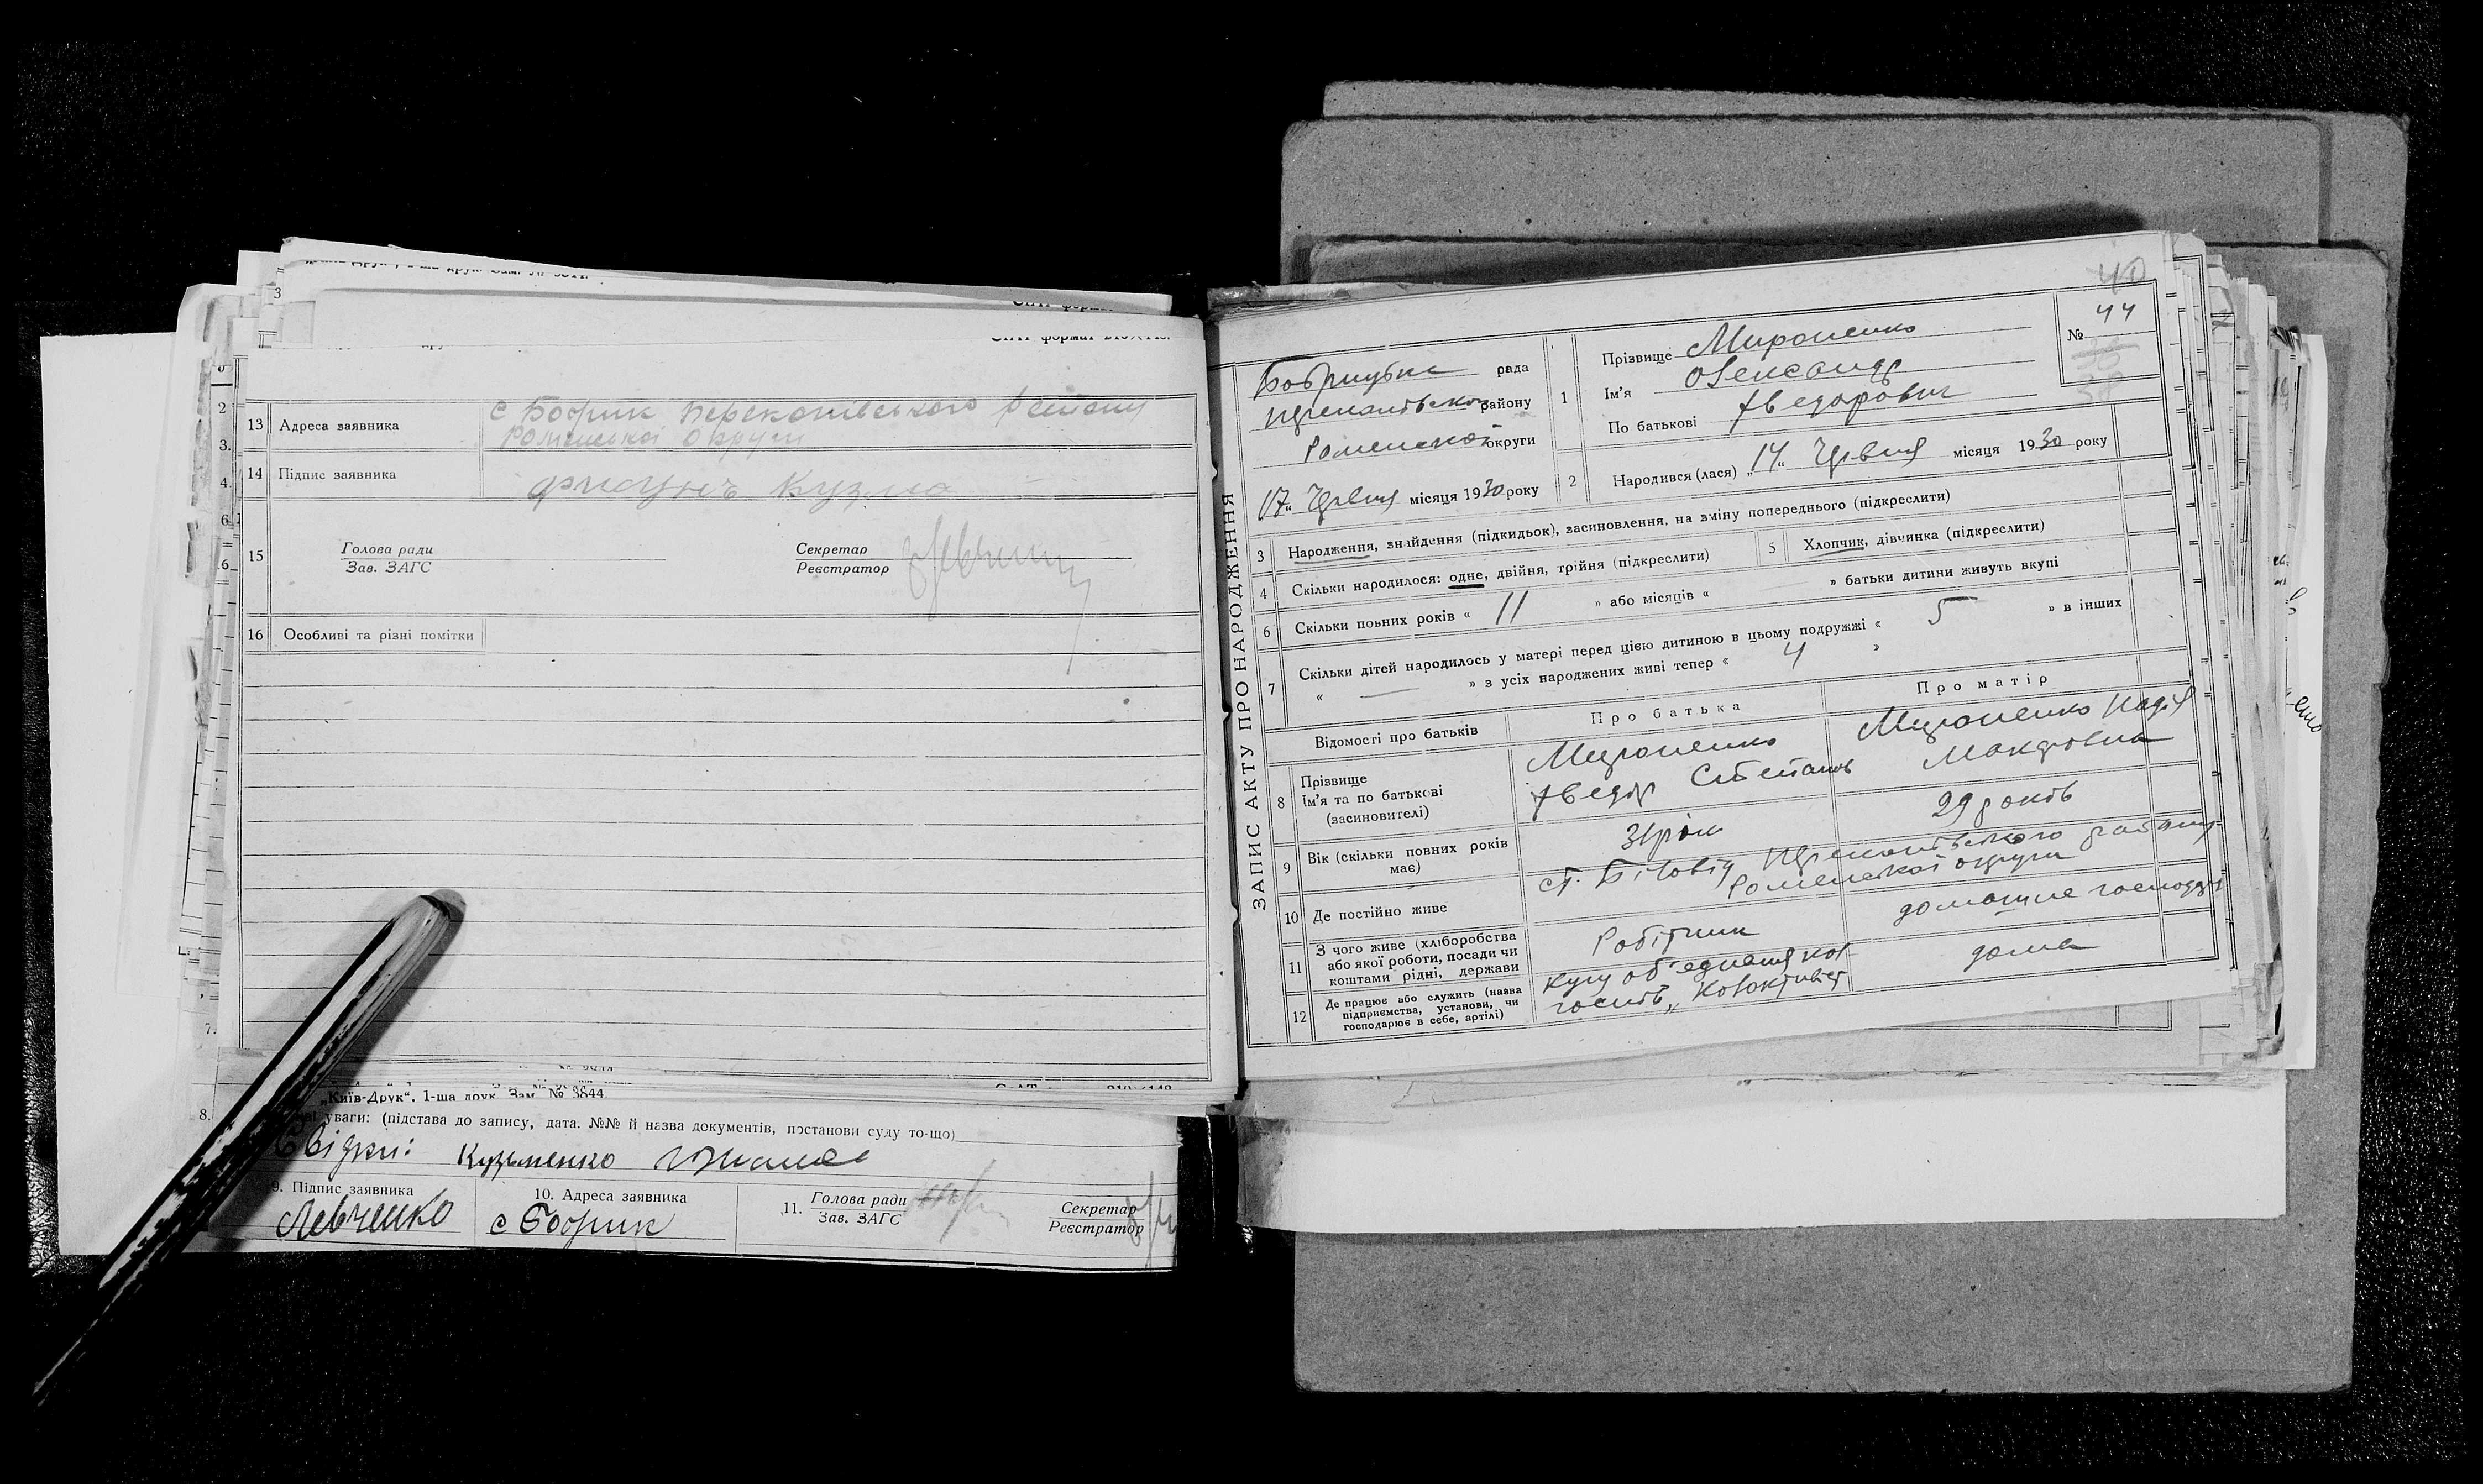 13 Адреса заявника
с Бобрик Перекопівського району
Роменської Округи
14 Підпис заявника
Фисунъ Кузма
15
Голова ради
Зав. ЗАГС
Секретар
Реєстратор
16 Особливі та різні помітки
„Київ-Друк“, 1-ша друк. Зам. № 3844.
8.
уваги: (підстава до запису, дата. №№ й назва документів, постанови суду то-що)
Свідки: Кузьменко
9. Підпис заявника
Левченко
10. Адреса заявника
с Бобрик
11. Голова ради
Зав. ЗАГС
Секретар
Реєстратор
40
ЗАПИС АКТУ ПРО НАРОДЖЕННЯ
рада
району
Роменської округи
„17“ Червня місяця 1930 року
1
Прізвище Мироненко
Ім'я Олександр
По батькові Хведорович
№ 44
2 Народився (лася) „14“ Червня місяця 1930 року
3 Народження, знайдення (підкидьок), засиновлення, на зміну попереднього (підкреслити)
4 Скільки народилося: одне, двійня, трійня (підкреслити)
5 Хлопчик, дівчинка (підкреслити)
6 Скільки повних років « 11 » або місяців « » батьки дитини живуть вкупі
7 Скільки дітей народилось у матері перед цією дитиною в цьому подружжі « 5 » в інших
« — » з усіх народжених живі тепер « 4 »
Відомості про батьків
Про батька
Про матір
8 Прізвище
Ім'я та по батькові
(засиновителі)
Мироненко
Хведір Степанов
Мироненко Надія
Мокіровна
9 Вік (скільки повних років має)
31 рік
29 років
10 Де постійно живе
ст. Біловід Перекопівського району
Роменської округи
11 З чого живе (хліборобства
або якої роботи, посади чи
коштами рідні, держави
Робітник
домашнє господар
12 Де працює або служить (назва
підприємства, установи, чи
господарює в себе, артілі)
Кущ об'єднання кол
госпів „Колективіст
дома